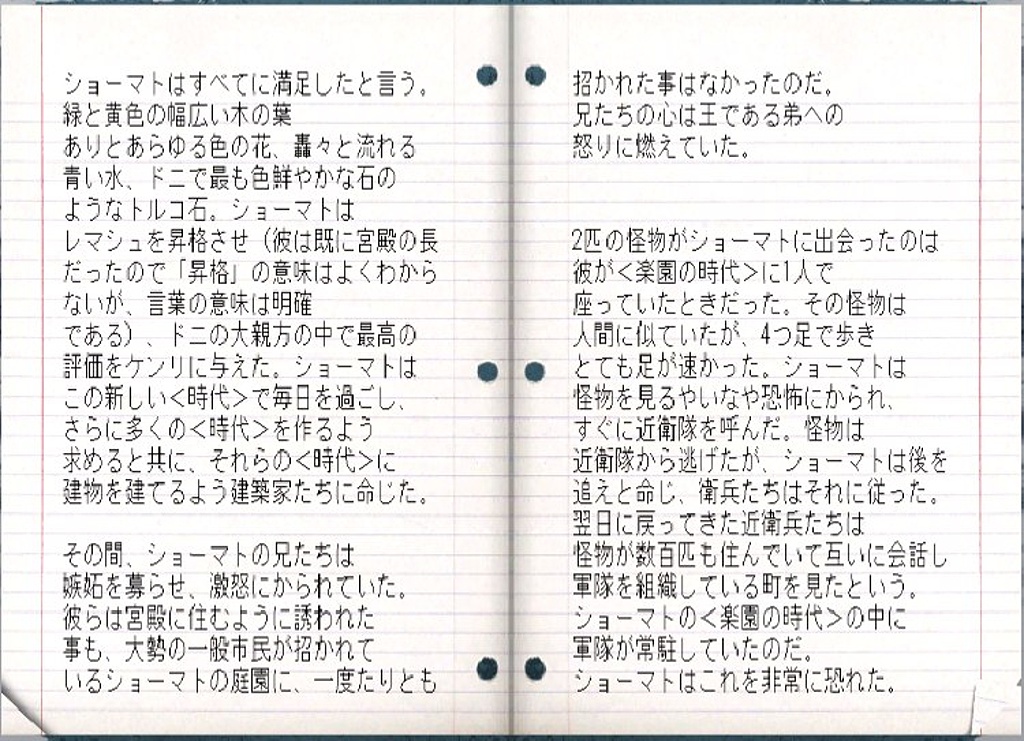 ショーマトはすべてに満足したと言う。
緑と黄色の幅広い木の葉
ありとあらゆる色の花、轟々と流れる
青い水、ドニで最も色鮮やかな石の
ようなトルコ石。ショーマトは
レマシュを昇格させ（彼は既に宮殿の長
だったので「昇格」の意味はよくわから
ないが、言葉の意味は明確
である）、ドニの大親方の中で最高の
評価をケンリに与えた。ショーマトは
この新しい＜時代＞で毎日を過ごし、
さらに多くの＜時代＞を作るよう
求めると共に、それらの＜時代＞に
建物を建てるよう建築家たちに命じた。
その間、ショーマトの兄たちは
嫉妬を募らせ、激怒にかられていた。
彼らは宮殿に住むように誘われた
事も、大勢の一般市民が招かれて
いるショーマトの庭園に、一度たりとも
招かれた事はなかったのだ。
兄たちの心は王である弟への
怒りに燃えていた。
2匹の怪物がショーマトに出会ったのは
彼が＜楽園の時代＞に1人で
座っていたときだった。その怪物は
人間に似ていたが、4つ足で歩き
とても足が速かった。ショーマトは
怪物を見るやいなや恐怖にかられ、
すぐに近衛隊を呼んだ。怪物は
近衛隊から逃げたが、ショーマトは後を
追えと命じ、衛兵たちはそれに従った。
翌日に戻ってきた近衛兵たちは
怪物が数百匹も住んでいて互いに会話し
軍隊を組織している町を見たという。
ショーマトの＜楽園の時代＞の中に
軍隊が常駐していたのだ。
ショーマトはこれを非常に恐れた。